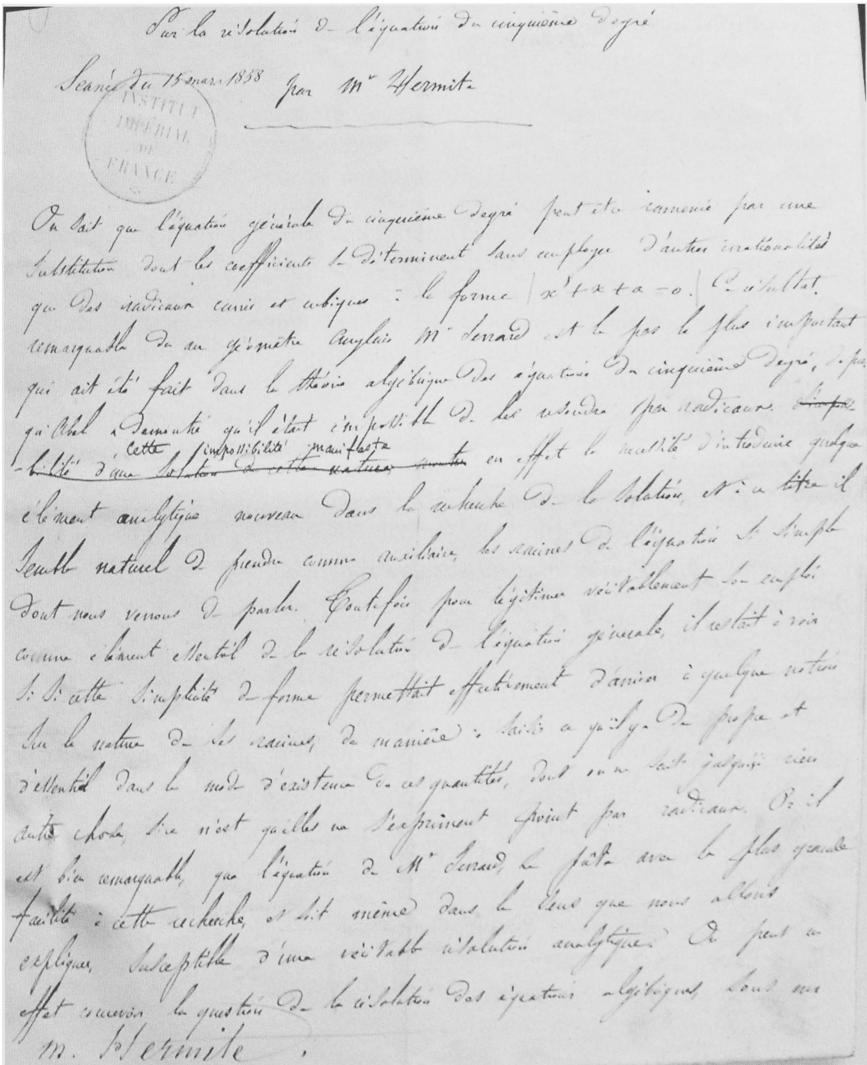 Sur la résolution de l'équation du cinquième degré
Séance du 15 mars 1858
par Mr Hermite
INSTITUT
IMPÉRIAL
DE
FRANCE
On sait que l'équation générale du cinquième degré peut être ramenée par une
substitution dont les coefficients se déterminent sans employer d'autres irrationalités
que des radicaux carrés et cubiques à la forme x⁵+x+a=0. Ce résultat
remarquable du au géomètre anglais Mr Jerrard est le pas le plus important
qui ait été fait dans la théorie algébrique des équations du cinquième degré, depuis
qu'Abel a démontré qu'il était impossible de les résoudre par radicaux. L'impossi
-bilité d'une solution de cette nature, cette impossibilité manifeste en effet la nécessité d'introduire quelque
élément analytique nouveau dans la recherche de la solution, et à ce titre il
semble naturel de prendre comme auxiliaire, les racines de l'équation si simple
dont nous venons de parler. Toutefois pour légitimer véritablement son emploi
comme élément essentiel de la résolution de l'équation générale, il restait à voir
si si cette simplicité de forme permettait effectivement d'arriver à quelque notion
sur la nature de ses racines, de manière à saisir ce qu'il y a de propre et
d'essentiel dans le mode d'existence de ces quantités, dont on ne sait jusqu'ici rien
autre chose, si ce n'est qu'elles ne s'expriment point par radicaux. Or il
est bien remarquable, que l'équation de Mr Jerrard, se prête avec la plus grande
facilité à cette recherche, et soit même dans le sens que nous allons
expliquer, susceptible d'une véritable résolution analytique. On peut en
effet concevoir la question de la résolution des équations algébriques, sous un
M. Hermite.